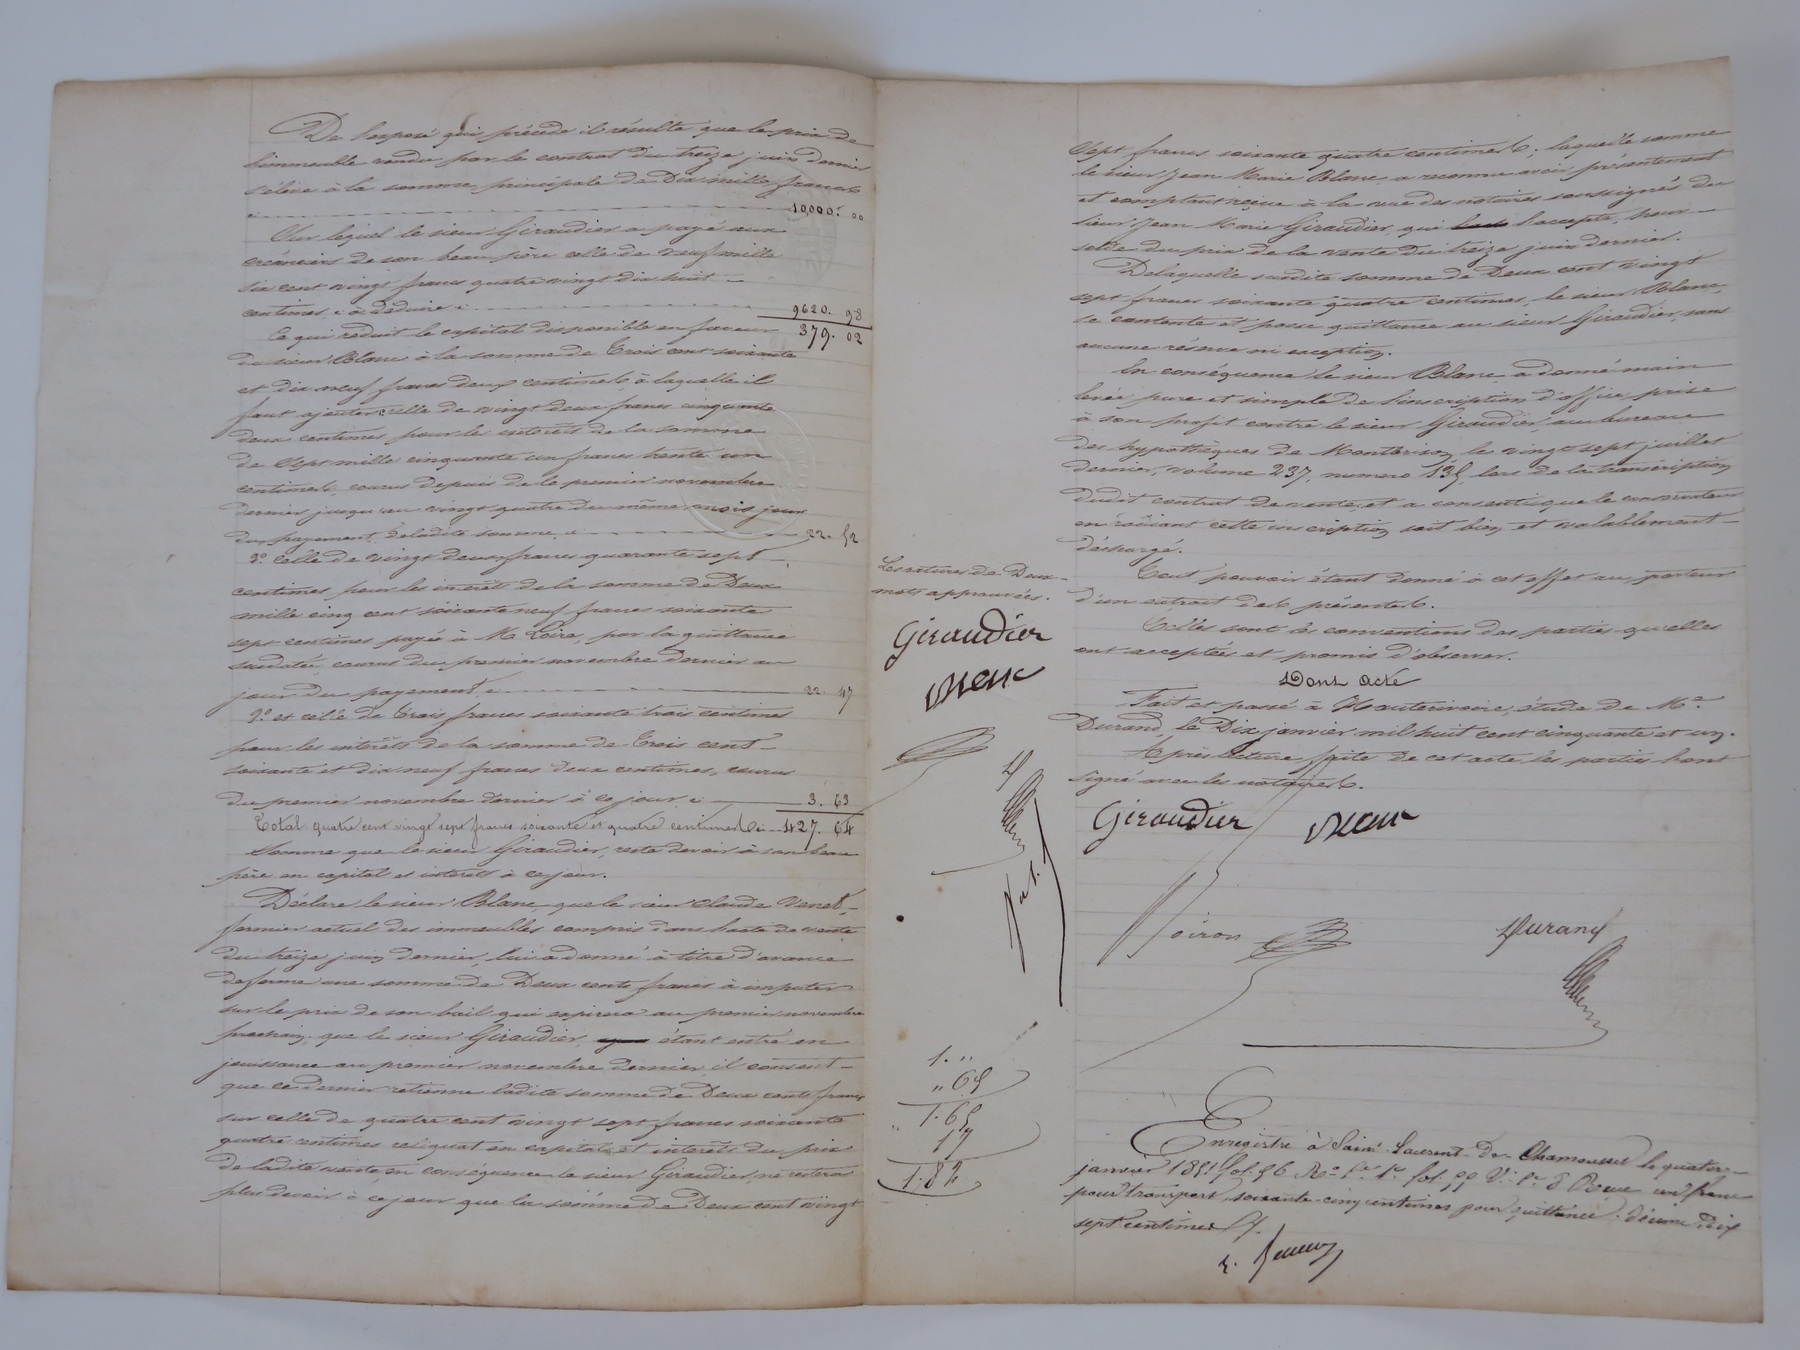 De l'exposé qui précède il résulte que le prix de
l'immeuble vendu par le contrat du treize juin dernier
s'élève à la somme principale de Dix mille francs
10,000. 00
Sur lequel le sieur Giraudier a payé aux
créanciers de son beau père celle de neuf mille
six cent vingt francs quatre vingt dix huit
centimes, à déduire 9620. 98
Ce qui réduit le capital disponible en faveur 379. 02
du sieur Blanc à la somme de Trois cent soixante
et dix neuf francs deux centimes, à laquelle il
faut ajouter celle de vingt deux francs cinquante
deux centimes pour les intérêts de la somme
de Sept mille cinquante un francs trente un
centimes, courus depuis de le premier novembre
dernier jusqu'au vingt quatre du même mois jour
du payement de ladite somme, 22. 52
2° Celle de vingt deux francs quarante sept
centimes pour les intérêts de la somme de Deux
mille cinq cent soixante neuf francs soixante
sept centimes payée à Me Loire, par la quittance
susdatée, courus du premier novembre dernier au
jour du payement 22. 47
3° et celle de Trois francs soixante trois centimes
pour les intérêts de la somme de Trois cent
soixante et dix neuf francs deux centimes, courus
du premier novembre dernier à ce jour 3. 63
Total quatre cent vingt sept francs soixante et quatre centimes 427. 64
Somme que le sieur Giraudier, reste devoir à son beau
père en capital et intérêts à ce jour.
Déclare le sieur Blanc, que le sieur Claude Venet,
fermier actuel des immeubles compris dans l'acte de vente
du treize juin dernier, lui a donné à titre d'avance
de ferme une somme de Deux cents francs à imputer
sur le prix de son bail qui expirera au premier novembre
prochain; que le sieur Giraudier, étant entré en
jouissance au premier novembre dernier, il consent
que ce dernier retienne ladite somme de Deux cents francs
sur celle de quatre cent vingt sept francs soixante
quatre centimes reliquat en capital et intérêts du prix
de ladite vente, en conséquence le sieur Giraudier, ne restera
plus devoir à ce jour que la somme de Deux cent vingt
Les ratures de Deux
mots approuvées.
Giraudier
Blanc
D
1. "
" 65
1. 65
17
1. 82
Sept francs soixante quatre centimes; laquelle somme
le sieur Jean Marie Blanc a reconnu avoir présentement
et comptant reçue à la vue des notaires soussignés du
sieur Jean Marie Giraudier, qui l'accepte, pour
solde du prix de la vente du treize juin dernier.
De laquelle susdite somme de Deux cent vingt
sept francs soixante quatre centimes, le sieur Blanc,
se contente et passe quittance au sieur Giraudier, sans
aucune réserve ni exception.
En conséquence le sieur Blanc a donné main
levée pure et simple de l'inscription d'office prise
à son profit contre le sieur Giraudier, au bureau
des hypothèques de Montbrison, le vingt sept juillet
dernier, volume 237, numéro 135 lors de la transcription
dudit contrat de vente, et a consenti que le conservateur
en radiant cette inscription soit bien et valablement
déchargé.
Tout pouvoir étant donné à cet effet au porteur
d'un extrait des présentes.
Telles sont les conventions des parties qu'elles
ont acceptées et promis d'observer.
Dont acte
Fait et passé à Hauterivoire, étude de Me
Durand, le Dix janvier mil huit cent cinquante et un.
Après lecture faite de cet acte, les parties l'ont
signé avec les notaires.
Giraudier Blanc
Noiron Durand
Enregistré à Saint Laurent de Chamousset le quatorze
janvier 1851 fol. 56 Ro Reçu un franc
pour transport, soixante-cinq centimes pour quittance, décime dix
sept centimes